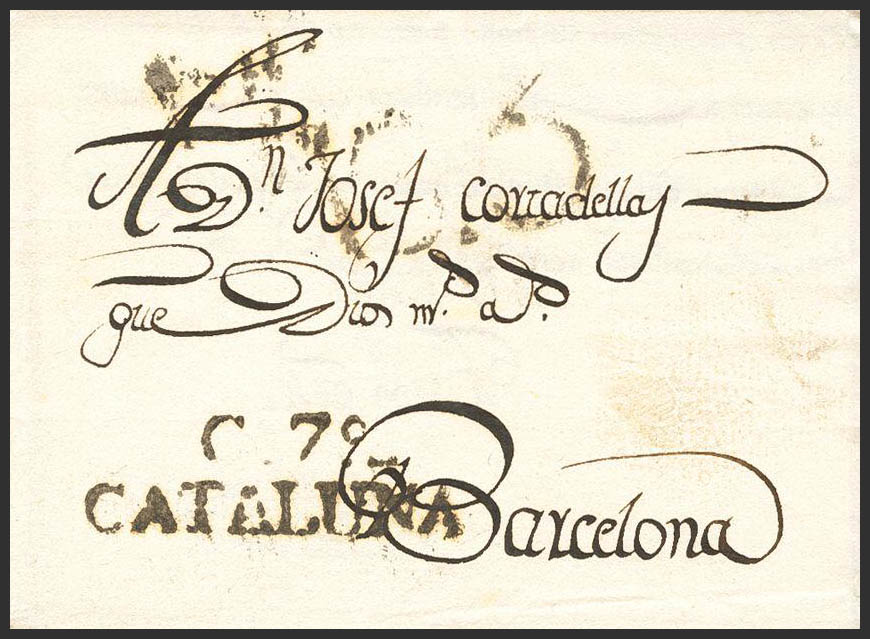 A D.n Josef cortadellas
gue Dios m.s a.s
C 7º
CATALUÑA
Barcelona